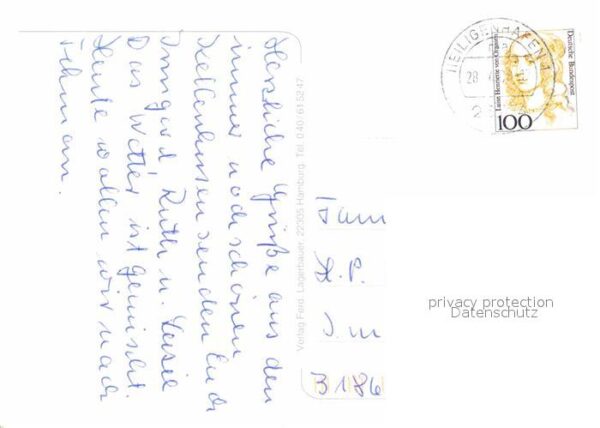 Herzliche Grüße aus dem
immer noch schönen
Kellenhusen senden Euch
Irmgard, Ruth u. Liesel
Das Wetter ist gemischt.
Heute wollen wir nach
Fehmarn.
Verlag Ferd. Lagerbauer, 22305 Hamburg, Tel. 0 40 61 52 47
HEILIGENHAFEN 1
28
2
Deutsche Bundespost
Luise Henriette von Oranien
100
Fam
H.P.
3186
privacy protection
Datenschutz